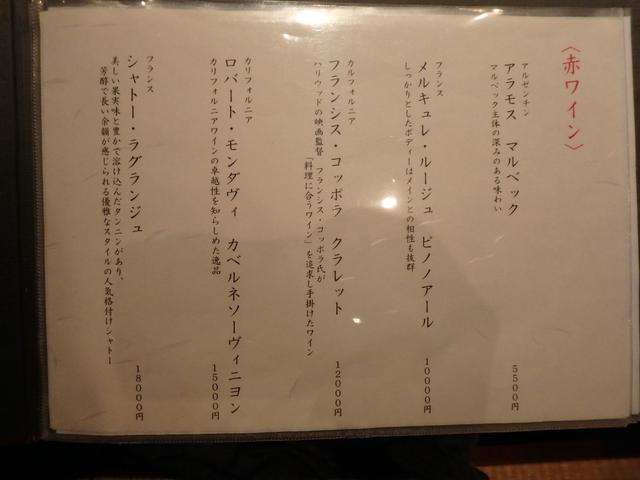 〈赤ワイン〉
アルゼンチン
アラモス マルベック
マルベック主体の深みのある味わい
5500円
フランス
メルキュレ・ルージュ ピノノアール
しっかりとしたボディーはメインとの相性も抜群
10000円
カルフォルニア
フランシス・コッポラ クラレット
ハリウッドの映画監督 フランシス・コッポラ氏が
「料理に合うワイン」を追求し手掛けたワイン
12000円
カリフォルニア
ロバート・モンダヴィ カベルネソーヴィニヨン
カリフォルニアワインの卓越性を知らしめた逸品
15000円
フランス
シャトー・ラグランジュ
美しい果実味と豊かで溶け込んだタンニンがあり、
芳醇で長い余韻が感じられる優雅なスタイルの人気格付けシャトー
18000円